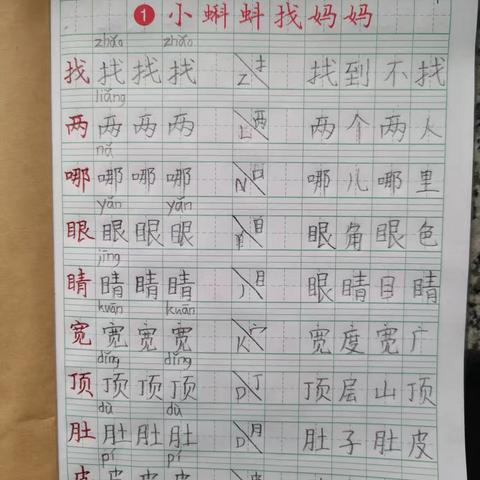 1 小蝌蚪找妈妈
zhǎo zhǎo
找 找 找 找 Z 扌 找到 不找
liǎng
两 两 两 两 L 两 两个 两人
nǎ
哪 哪 哪 哪 N 口 哪儿 哪里
yǎn yǎn
眼 眼 眼 眼 目 眼角 眼色
jīng
睛 睛 睛 睛 J 目 眼睛 目睛
kuān kuān
宽 宽 宽 宽 K 宀 宽度 宽广
dǐng dǐng
顶 顶 顶 顶 D 丁 顶层 山顶
dù dù
肚 肚 肚 肚 D 月 肚子 肚皮
pí pí
皮 皮 皮 皮